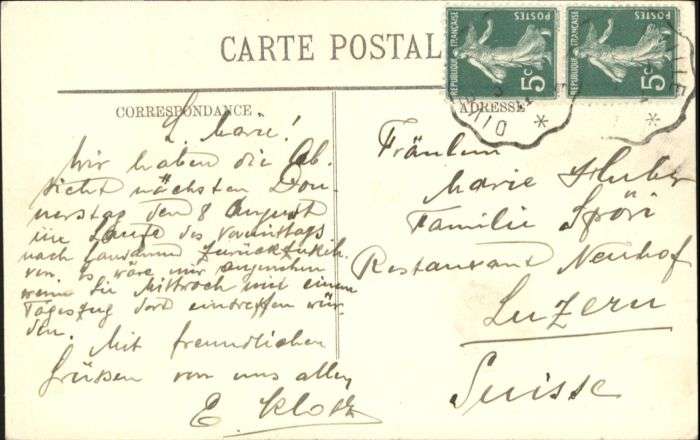 CARTE POSTALE
CORRESPONDANCE
ADRESSE
RÉPUBLIQUE FRANÇAISE
POSTES
5c
RÉPUBLIQUE FRANÇAISE
POSTES
5c
L. Marie!
Wir haben die Ab-
sicht nächsten Don-
nerstag den 8 August
im Laufe des Vormittags
nach Lausanne zurückzukeh-
ren. Es wäre mir angenehm
wenn Sie Mittwoch mit einem
Tageszug dort eintreffen wür-
den.
Mit freundlichen
Grüssen von uns allen
E. Klotz
Fräulein
Marie Huber
Familie Spöri
Restaurant Neuhof
Luzern
Suisse